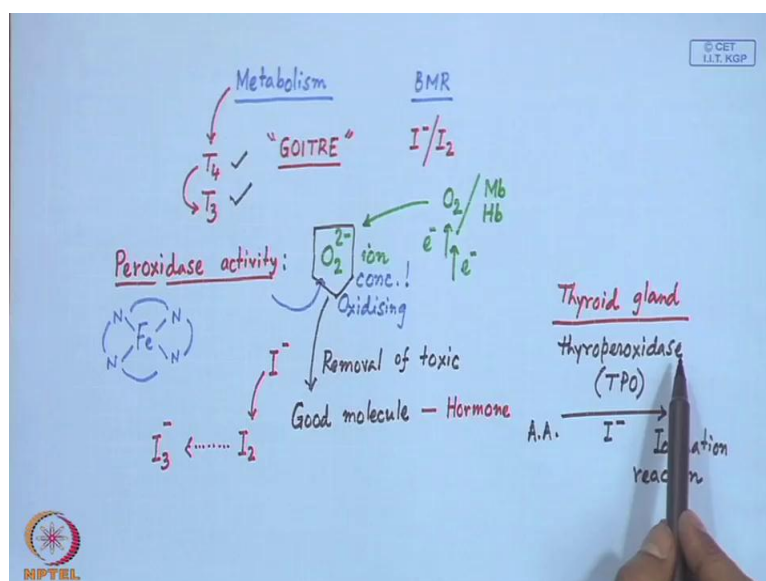 © CET
I.I.T. KGP
Metabolism
BMR
T4 ✓
"GOITRE"
I⁻/I2
T3 ✓
O2 / Mb
Hb
e⁻
e⁻
Peroxidase activity:
O2²⁻ ion
conc.!
Oxidising
N N
Fe
N N
I⁻
Removal of toxic
Good molecule — Hormone
I3⁻ <...... I2
Thyroid gland
thyroperoxidase
(TPO)
A.A. I⁻
NPTEL